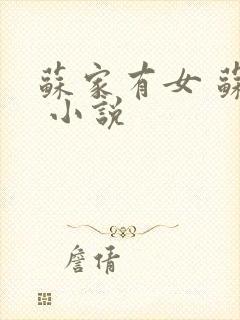 蘇家有女 蘇
小說
詹倩